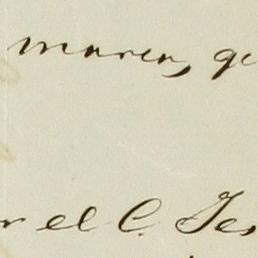 maren, ge
r el C. Tes